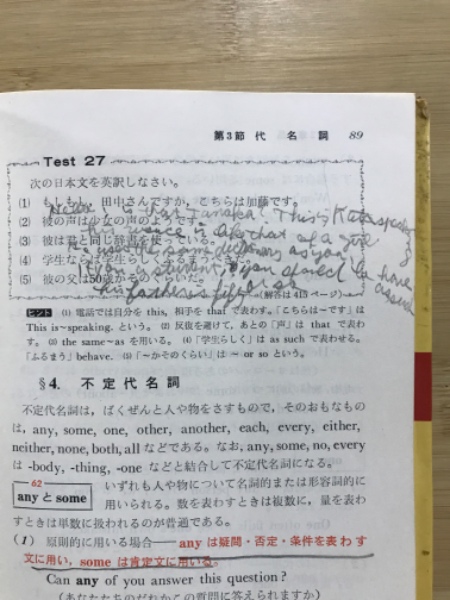 第3節 代 名 詞 89
Test 27
次の日本文を英訳しなさい。
(1) もしもし,田中さんですか,こちらは加藤です。
Tanaka? This is Kato speaking
(2) 彼の声は少女の声のようです。
his voice is like that of a girl
(3) 彼は君と同じ辞書を使っている。
He uses the same dictionary as you
(4) 学生なら学生らしくふるまうべきだ。
If you student, you behave
as such
(5) 彼の父は50歳かそのくらいだ。
his father is fifty or so
(解答は415ページ)
ヒント (1) 電話では自分を this, 相手を that で表わす。「こちらは〜です」は
This is〜speaking. という。 (2) 反復を避けて,あとの「声」は that で表わ
す。 (3) the same〜as を用いる。 (4)「学生らしく」は as such で表わせる。
「ふるまう」behave. (5)「〜かそのくらい」は 〜 or so という。
§4. 不 定 代 名 詞
不定代名詞は,ばくぜんと人や物をさすもので,そのおもなもの
は, any, some, one, other, another, each, every, either,
neither, none, both, all などである。なお, any, some, no, every
は -body, -thing, -one などと結合して不定代名詞になる。
62
any と some
いずれも人や物について名詞的または形容詞的に
用いられる。数を表わすときは複数に,量を表わ
すときは単数に扱われるのが普通である。
(1) 原則的に用いる場合──any は疑問・否定・条件を表わす
文に用い, some は肯定文に用いる。
Can any of you answer this question?
(あなたたちのだれかこの質問に答えられますか)